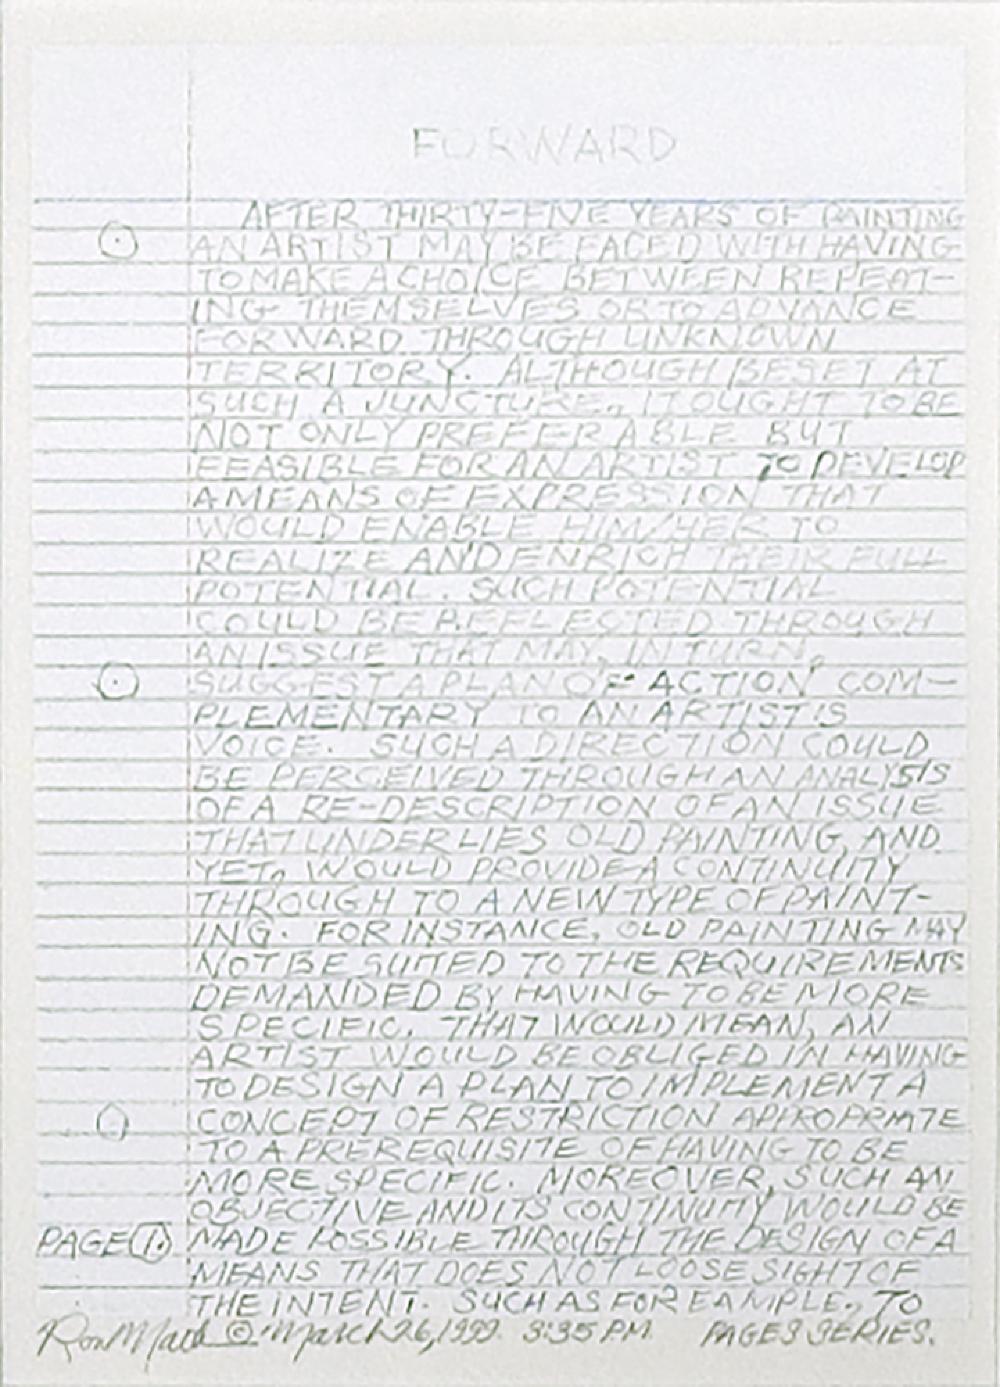 FORWARD
AFTER THIRTY-FIVE YEARS OF PAINTING
AN ARTIST MAY BE FACED WITH HAVING
TO MAKE A CHOICE BETWEEN REPEAT-
ING THEMSELVES OR TO ADVANCE
FORWARD THROUGH UNKNOWN
TERRITORY. ALTHOUGH BESET AT
SUCH A JUNCTURE, IT OUGHT TO BE
NOT ONLY PREFERABLE BUT
FEASIBLE FOR AN ARTIST TO DEVELOP
A MEANS OF EXPRESSION THAT
WOULD ENABLE HIM/HER TO
REALIZE AND ENRICH THEIR FULL
POTENTIAL. SUCH POTENTIAL
COULD BE REFLECTED THROUGH
AN ISSUE THAT MAY, IN TURN,
SUGGEST A PLAN OF ACTION COM-
PLEMENTARY TO AN ARTIST'S
VOICE. SUCH A DIRECTION COULD
BE PERCEIVED THROUGH AN ANALYSIS
OF A RE-DESCRIPTION OF AN ISSUE
THAT UNDERLIES OLD PAINTING, AND
YET, WOULD PROVIDE A CONTINUITY
THROUGH TO A NEW TYPE OF PAINT-
ING. FOR INSTANCE, OLD PAINTING MAY
NOT BE SUITED TO THE REQUIREMENTS
DEMANDED BY HAVING TO BE MORE
SPECIFIC. THAT WOULD MEAN, AN
ARTIST WOULD BE OBLIGED IN HAVING
TO DESIGN A PLAN TO IMPLEMENT A
CONCEPT OF RESTRICTION APPROPRIATE
TO A PREREQUISITE OF HAVING TO BE
MORE SPECIFIC. MOREOVER, SUCH AN
OBJECTIVE AND ITS CONTINUITY WOULD BE
PAGE 1. MADE POSSIBLE THROUGH THE DESIGN OF A
MEANS THAT DOES NOT LOOSE SIGHT OF
THE INTENT. SUCH AS FOR EAMPLE, TO
Ron © March 26, 1999. 3:35 PM. PAGES SERIES.